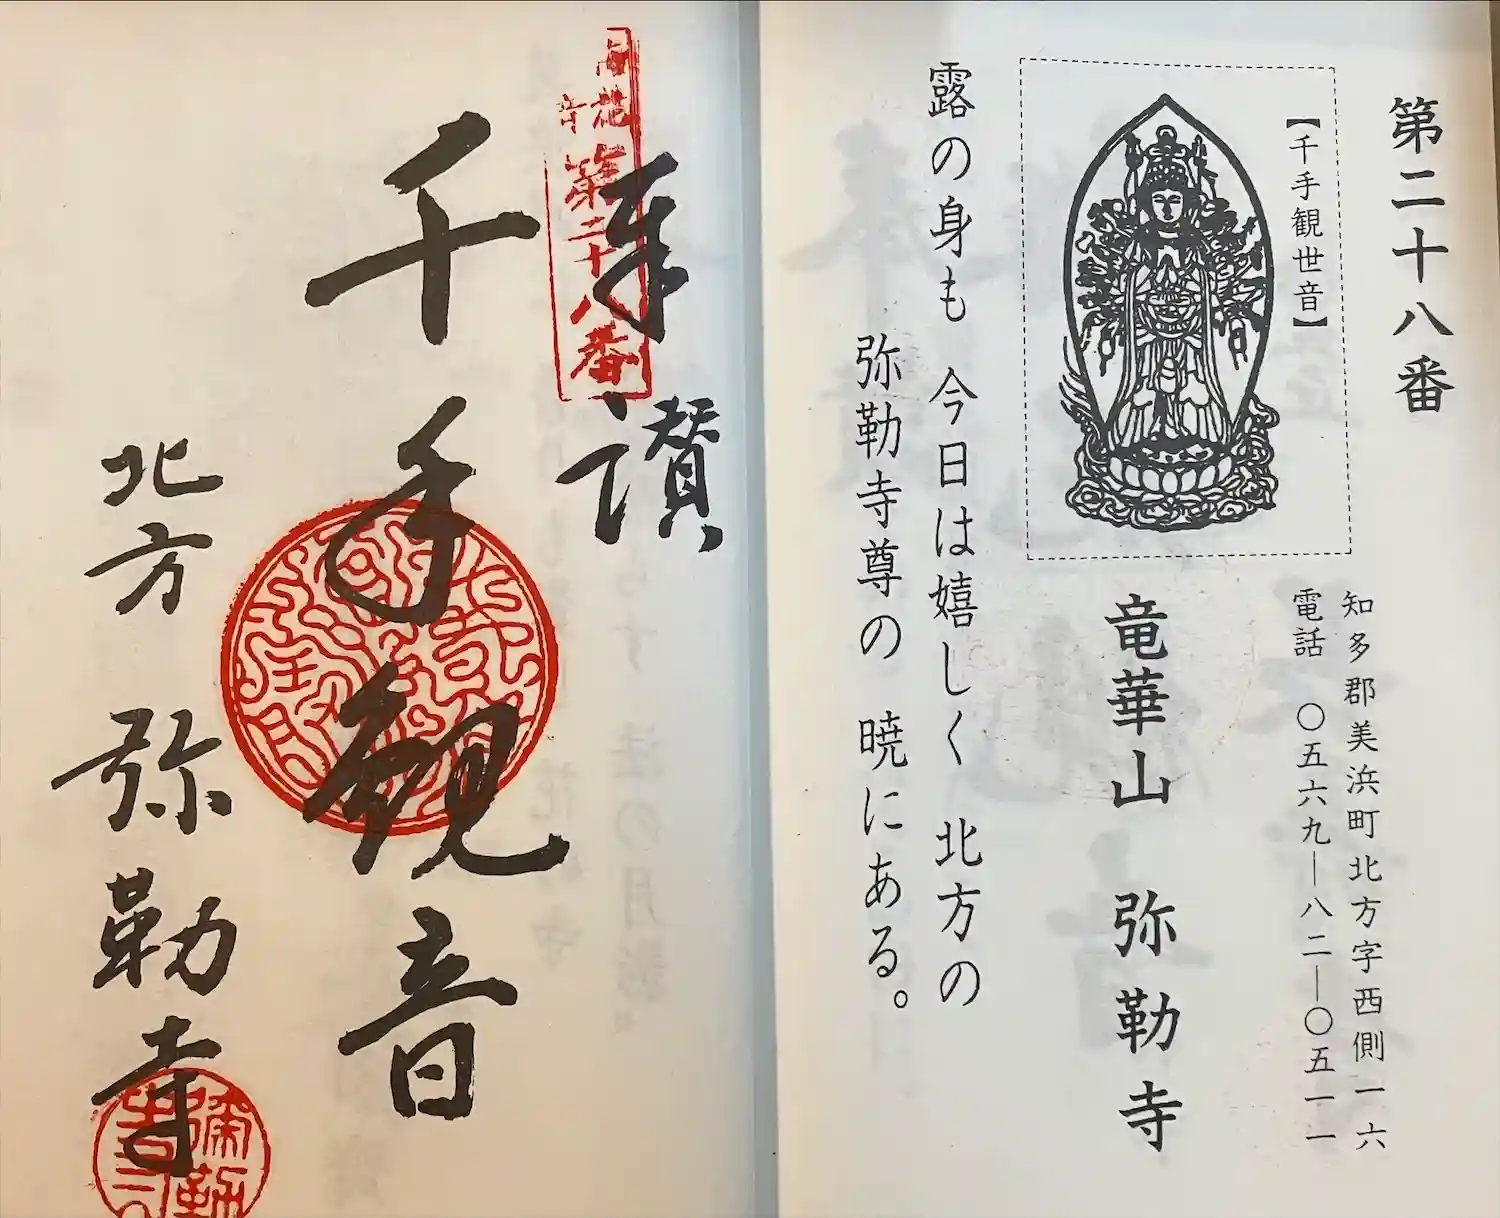 第二十八番
【千手観世音】
知多郡美浜町北方字西側一六
電話　〇五六九―八二―〇五一一
竜華山　弥勒寺
露の身も　今日は嬉しく　北方の
弥勒寺尊の　暁にある。
第二十八番
奉
讃
千手観音
北方　弥勒寺